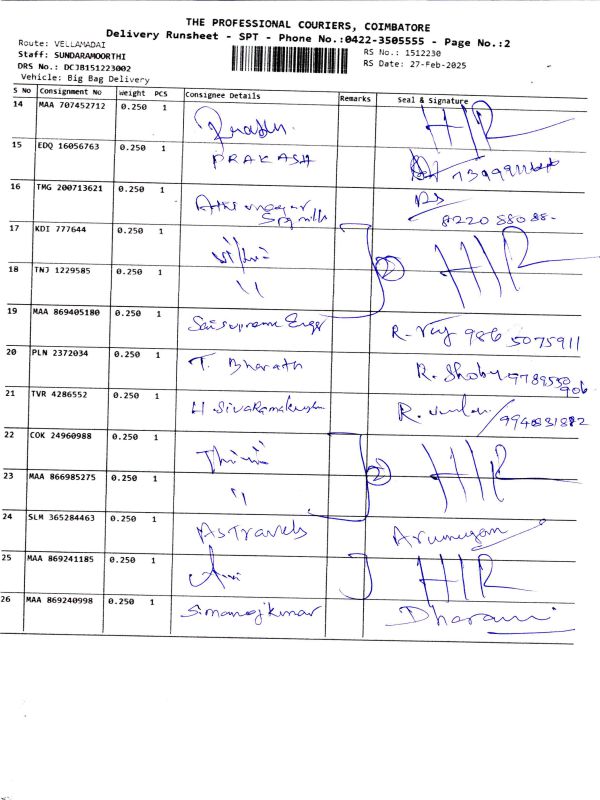 THE PROFESSIONAL COURIERS, COIMBATORE
Delivery Runsheet - SPT - Phone No.:0422-3505555 - Page No.:2
Route: VELLAMADAI
Staff: SUNDARAMOORTHI
DRS No.: DCJB151223002
Vehicle: Big Bag Delivery
RS No.: 1512230
RS Date: 27-Feb-2025
S No Consignment No Weight PCS Consignee Details Remarks Seal & Signature
14 MAA 707452712 0.250 1 H/R
15 EDQ 16056763 0.250 1 PRAKASH
16 TMG 200713621 0.250 1
8220 880 88-
17 KDI 777644 0.250 1 2 H/R
18 TNJ 1229585 0.250 1 "
19 MAA 869405180 0.250 1 Saisupreme Engg R. Vay 986 5075911
20 PLN 2372034 0.250 1 T. Bharath R. Shoby 9789550
906
21 TVR 4286552 0.250 1 H Sivaramakrishn R.
22 COK 24960988 0.250 1 2 H/R
23 MAA 866985275 0.250 1 "
24 SLM 365284463 0.250 1 AS Travels Arumugam
25 MAA 869241185 0.250 1 H/R
26 MAA 869240998 0.250 1 S.manojkumar Dharani